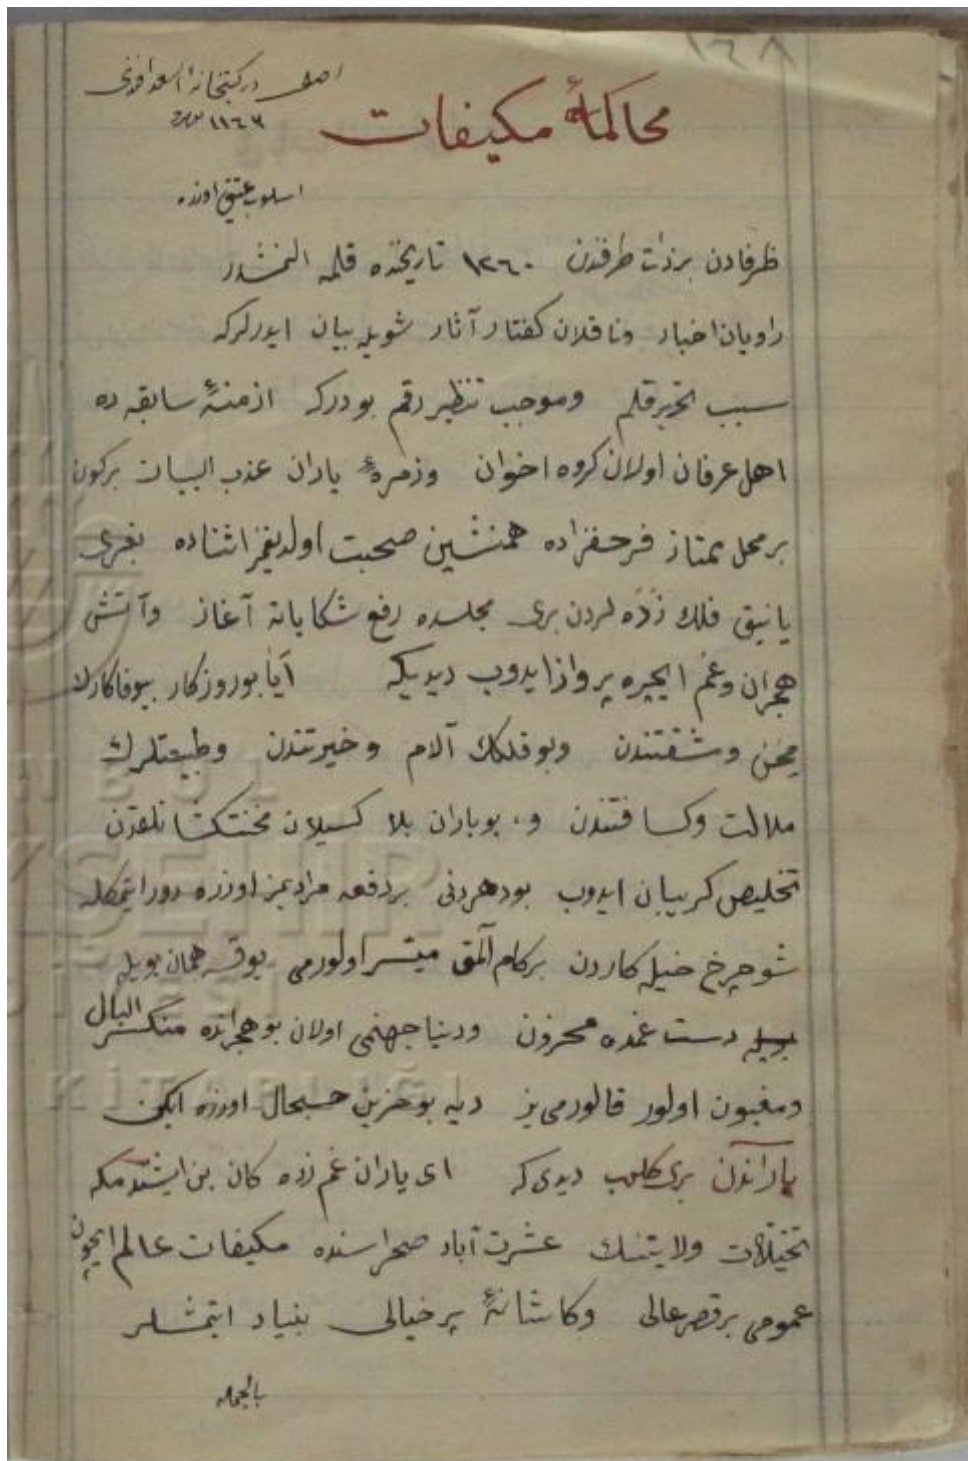 ١٦٨
اصلی در کتبخانهٔ اسعد افندی
نومرو ١١٤٣
محاکمهٔ مکیفات
اسلوب عتیق اوزره
ظرفادن برذات طرفندن ١٢٦٠ تاریخنده قلمه النمشدر
راویان اخبار وناقلان کفتار آثار شویله بیان ایدرلرکه
سبب تحریر قلم وموجب تنظیر رقم بودرکه ازمنهٔ سابقه ده
اهل عرفان اولان کروه اخوان وزمرهٔ یاران عذب البیان برکون
بر محل ممتاز فرحفزاده همنشین صحبت اولدیغمز اثناده بغری
یانیق فلک زده لردن بری مجلسده رفع شکایاته آغاز وآتش
هجران وغم ایچره پرواز ایدوب دیدیکه آیا بو روزکار بیوفاکارلک
محن وشقتندن وبو فلکک آلام وخیرتندن وطبیعتلرک
ملالت وکسافتندن و بو باران بلا کسیلان محنتکشانلغدن
تخلیص کریبان ایدوب بو دهر دنی بر دفعه مرادیمز اوزره دور ایتمکله
شو چرخ حیله کاردن برکام آلمق میسر اولورمی یوقسه همان بویله
بویله دست غمده محزون ودنیا جهنمی اولان بو هجرانده منکسر البال
ومغبون اولور قالورمی یز دیه بو حزین حسبحال اوزره ایکن
یاراندن بری کلوب دیدی که ای یاران غم زده کان بن ایشتدمکه
تخیلات ولایتنک عشرت آباد صحراسنده مکیفات عالم ایچون
عمومی بر قصر عالی وکاشانهٔ پر خیالی بنیاد ایتمشلر
بالجمله